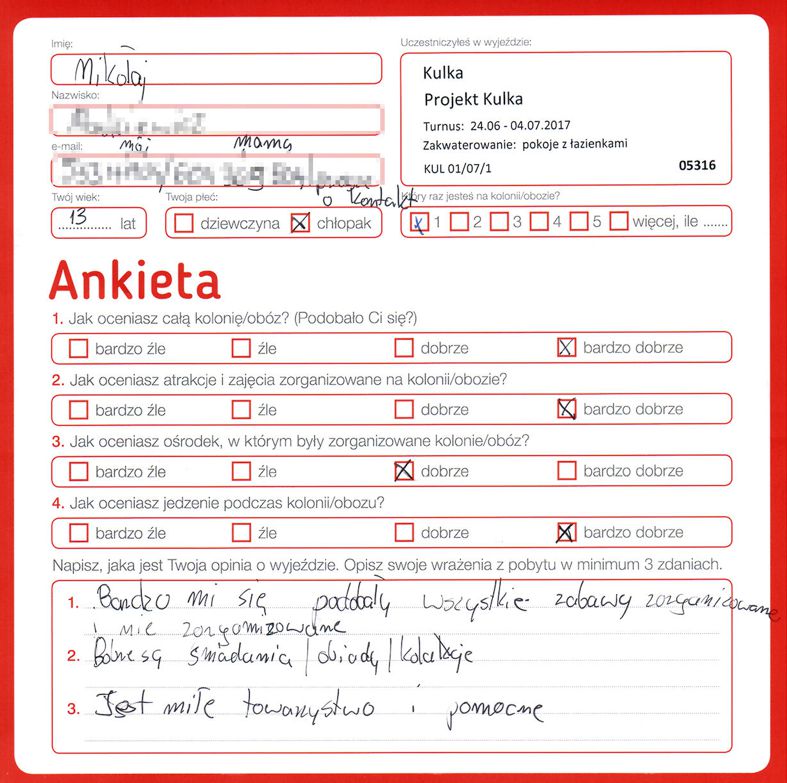 Imię:
Mikołaj
Nazwisko:
e-mail:
mój mamą
o kontakt
Twój wiek:
13 lat
Twoja płeć:
dziewczyna chłopak
Uczestniczyłeś w wyjeździe:
Kulka
Projekt Kulka
Turnus: 24.06 - 04.07.2017
Zakwaterowanie: pokoje z łazienkami
KUL 01/07/1 05316
Który raz jesteś na kolonii/obozie?
1 2 3 4 5 więcej, ile .......
Ankieta
1. Jak oceniasz całą kolonię/obóz? (Podobało Ci się?)
bardzo źle źle dobrze bardzo dobrze
2. Jak oceniasz atrakcje i zajęcia zorganizowane na kolonii/obozie?
bardzo źle źle dobrze bardzo dobrze
3. Jak oceniasz ośrodek, w którym były zorganizowane kolonie/obóz?
bardzo źle źle dobrze bardzo dobrze
4. Jak oceniasz jedzenie podczas kolonii/obozu?
bardzo źle źle dobrze bardzo dobrze
Napisz, jaka jest Twoja opinia o wyjeździe. Opisz swoje wrażenia z pobytu w minimum 3 zdaniach.
1. Bardzo mi się poddobały wszystkie zabawy zorganizowane
i nie zorganizowane
2. są śniadania / obiady / kolacje
3. Jest miłe towarzystwo i pomocne